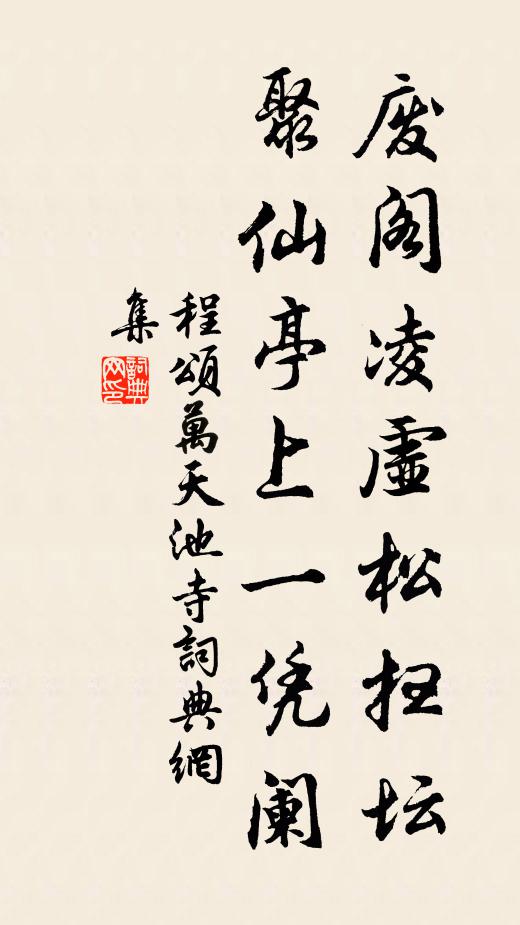 废阁凌虚松扫坛
聚仙亭上一凭阑
程頌萬天池寺詞典網
集
詞典
网印